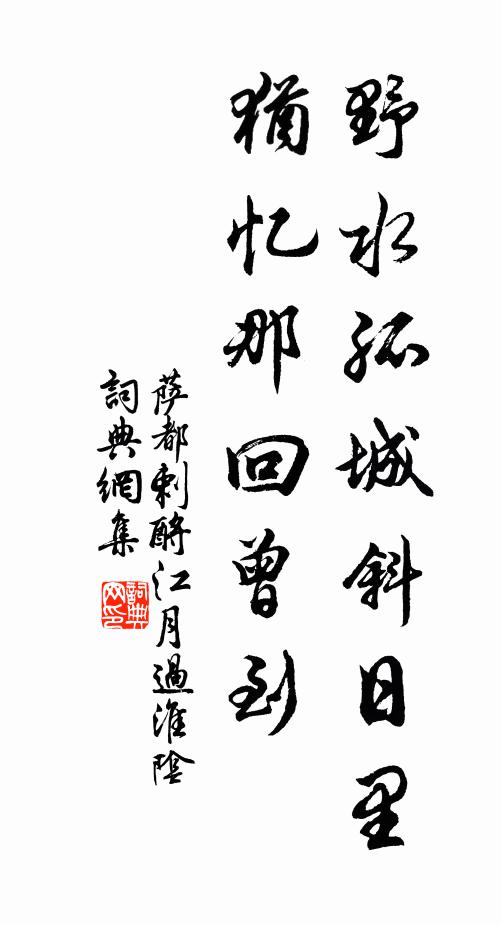 野水孤城斜日里
猶忆那回曾到
萨都剌酹江月過淮陰
詞典網集
詞典网印